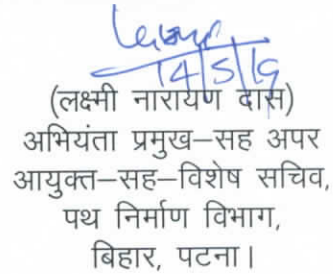 14/5/19
(लक्ष्मी नारायण दास)
अभियंता प्रमुख–सह अपर
आयुक्त–सह–विशेष सचिव,
पथ निर्माण विभाग,
बिहार, पटना।